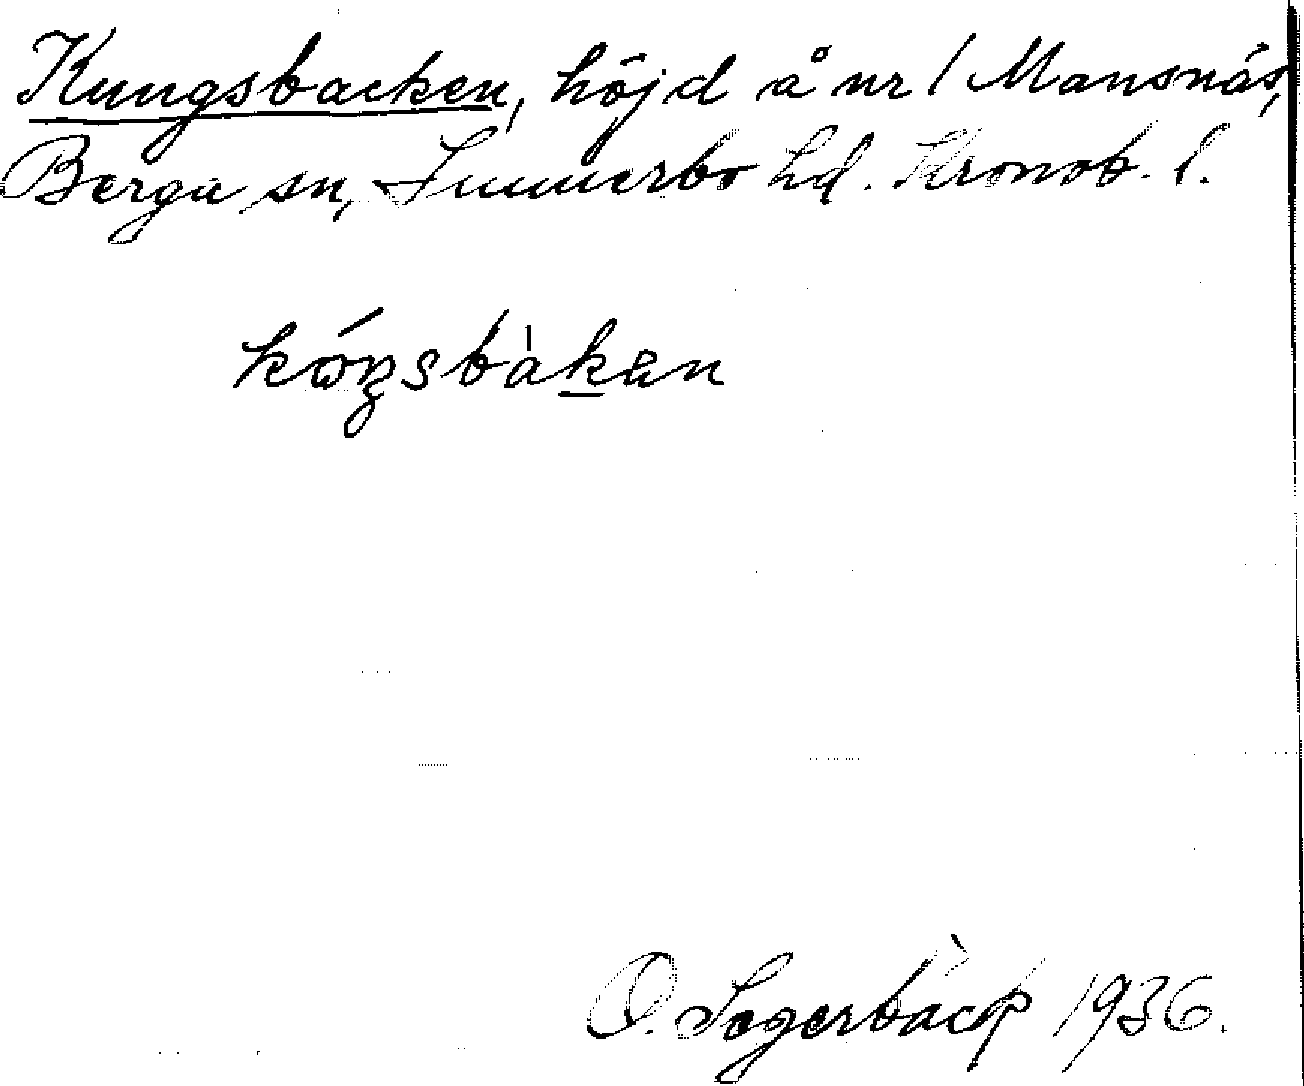 Kungsbacken, höjd å nr 1 Mansnäs,
Berga sn, Sunnerbo hd. Kronob. l.
O. Segerbäck 1936.